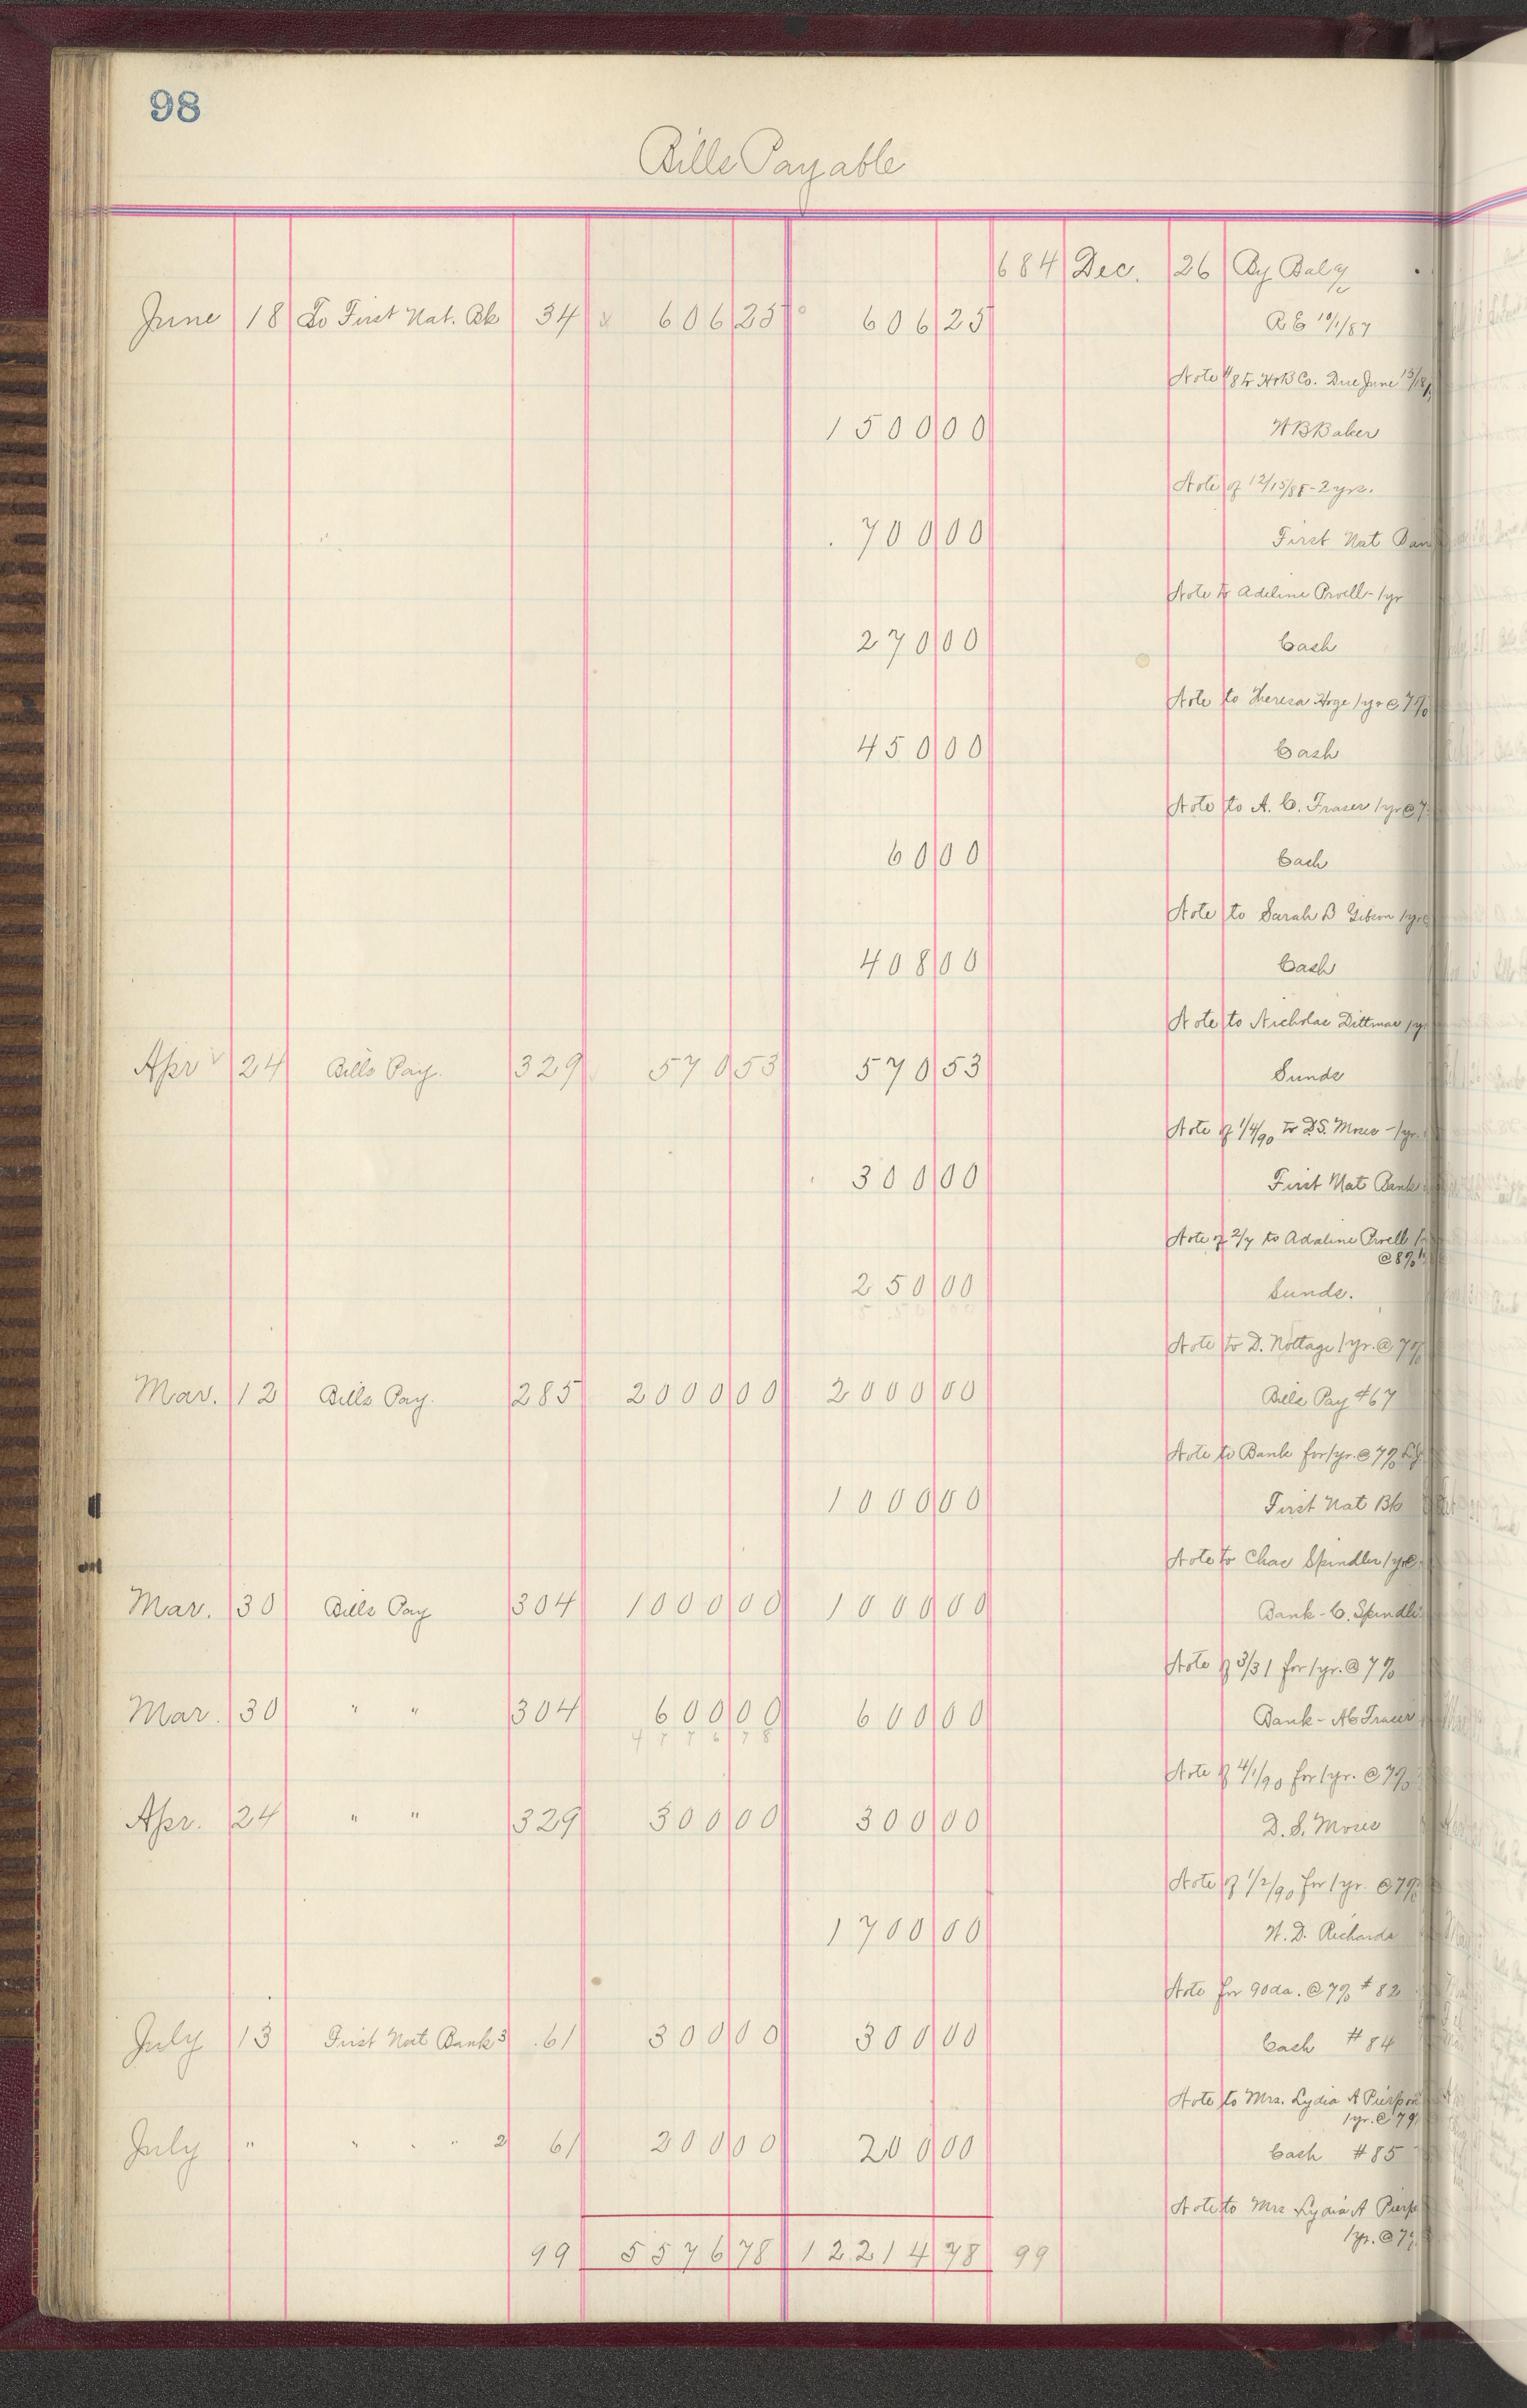 98
Bills Payable
684 Dec. 26 By Bal
June 18 To First Nat. Bk 34 606 25 606 25 R E 10/1/87
Note #8 to H&B Co. Due June 15/18
1500 00 W B Baker
Note of 12/15/88 - 2 yrs.
700 00 First Nat Ban
Note to Adeline Powell - 1 yr
270 00 Cash
Note to Theresa Hoge 1 yr @ 7%
450 00 Cash
Note to A. C. Fraser 1 yr @ 7
60 00 Cash
Note to Sarah B Gibson 1 yr @
408 00 Cash
Note to Nicholas Dittmar 1 y
Apr 24 Bills Pay. 329 570 53 570 53 Sunds
Note of 1/4/90 to D.S. Moses - 1 yr.
300 00 First Nat Bank
Note of 2/7 to Adaline Powell 1
@ 8%
250 00 Sunds.
Note to D. Nottage 1 yr. @ 7%
Mar. 12 Bills Pay. 285 2000 00 2000 00 Bills Pay #67
Note to Bank for 1 yr. @ 7%
1000 00 First Nat Bk
Note to Chas Spindler 1 yr @
Mar. 30 Bills Pay 304 1000 00 1000 00 Bank - C. Spindle
Note of 3/31 for 1 yr. @ 7%
Mar. 30 " " 304 600 00 600 00 Bank - A C Fraser
4776 78
Note of 4/1/90 for 1 yr. @ 7%
Apr. 24 " " 329 300 00 300 00 D. S. Moses
Note of 1/2/90 for 1 yr. @ 7%
1700 00 W. D. Richards
Note for 90 da. @ 7% #82
July 13 First Nat Bank 3 61 300 00 300 00 Cash #84
Note to Mrs. Lydia A Pierpon
1 yr. @ 7%
July " " " " 2 61 200 00 200 00 Cash #85
Note to Mrs Lydia A Pierp
1 yr. @ 7%
99 5576 78 12214 78 99